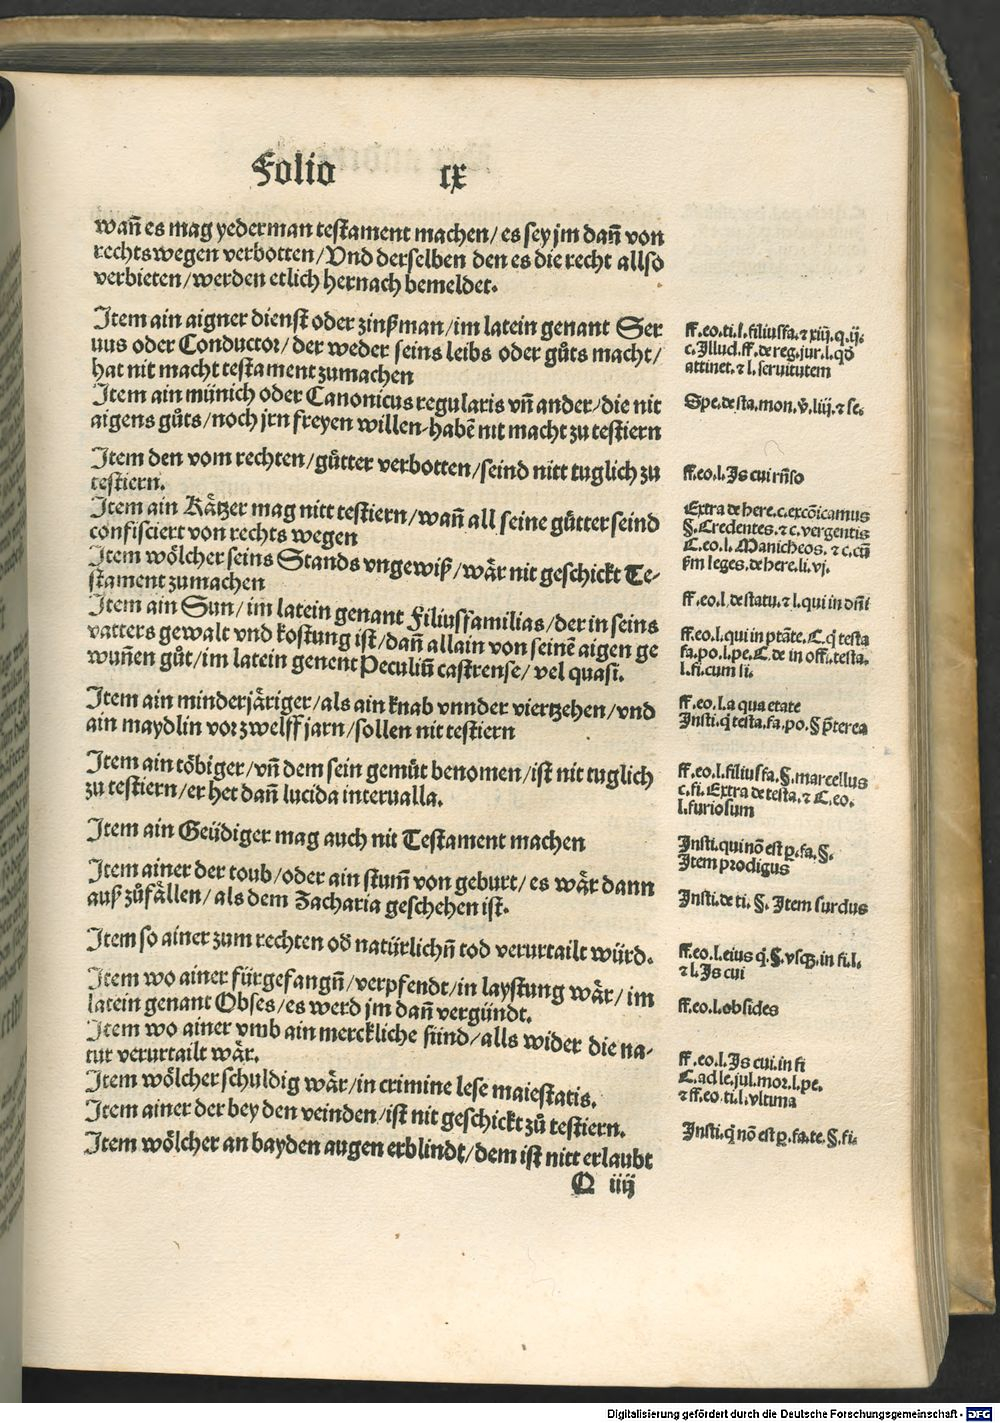 Folio cx
wañ es mag yederman testament machen/ es sey jm dañ von
rechts wegen verbotten/Vnd derselben den es die recht allso
verbieten/werden etlich hernach bemeldet.
Item ain aigner dienst oder zinßman/im latein genant Ser
uus oder Conductor/der weder seins leibs oder gůts macht/
hat nit macht testament zumachen
ff.eo.ti.l.filiusfa.⁊ xiij.q.ij.
c.Illud.ff.de reg.jur.l.qđ
attinet.⁊ l.seruitutem
Item ain münich oder Canonicus regularis vñ ander/die nit
aigens gůts/noch jrn freyen willen-habē nit macht zu testiern
Spe.de sta.mon.v̊.liij.⁊ se.
Item den vom rechten/gůtter verbotten/seind nitt tuglich zu
testiern.
ff.eo.l.Is cui rñso
Item ain Kåtzer mag nitt testiern/wañ all seine gůtter seind
confisciert von rechts wegen
Extra de here.c.excōicamus
§.Credentes.⁊ c.vergentis
C.eo.l.Manicheos.⁊ c.cū
ẜm leges.de here.li.vj.
Item wölcher seins Stands vngewiß/wår nit geschickt Te-
stament zumachen
ff.eo.l.de statu.⁊ l.qui in dñi
Item ain Sun/im latein genant Filiusfamilias/der in seins
vatters gewalt vnd kostung ist/dañ allain von seinē aigen ge
wuñen gůt/im latein genent Peculiū castrense/vel quasi.
ff.eo.l.qui in ptāte.C.q̇ testa
fa.po.l.pe.C.de in offi.testa.
l.fi.cum li.
Item ain minderjåriger/als ain knab vnnder viertzehen/vnd
ain maydlin vor zwelff jarn/sollen nit testiern
ff.eo.l.a qua etate
Insti.q̇ testa.fa.po.§ p̄terea
Item ain töbiger/vñ dem sein gemůt benomen/ist nit tuglich
zu testiern/er het dañ lucida interualla.
ff.eo.l.filiusfa.§.marcellus
c.fi.Extra de testa.⁊ C.eo.
l.furiosum
Item ain Geüdiger mag auch nit Testament machen
Insti.qui nō est ꝑ.fa.§.
Item prodigus
Item ainer der toub/oder ain stum̃ von geburt/es wår dann
auß zůfållen/als dem Zacharia geschehen ist.
Insti.de ti.§.Item surdus
Item so ainer zum rechten od̛ natürlichñ tod verurtailt würd.
ff.eo.l.eius q̇.§.vsqꝫ.in fi.l.
⁊ l.Is cui
Item wo ainer fürgefangñ/verpfendt/in laystung wår/im
latein genant Obses/es werd jm dañ vergündt.
ff.eo.l.obsides
Item wo ainer vmb ain merckliche sünd/alls wider die na-
tur verurtailt wår.
ff.eo.l.Is cui.in fi
Item wölcher schuldig wår/in crimine lese maiestatis.
C.ad le.jul.mor.l.pe.
⁊ ff.eo.ti.l.vltima
Item ainer der bey den veinden/ist nit geschickt zů testiern.
Item wölcher an bayden augen erblindt/dem ist nitt erlaubt
Insti.q̇ nō est ꝑ.fa.te.§.fi.
Q iiij
Digitalisierung gefördert durch die Deutsche Forschungsgemeinschaft - DFG